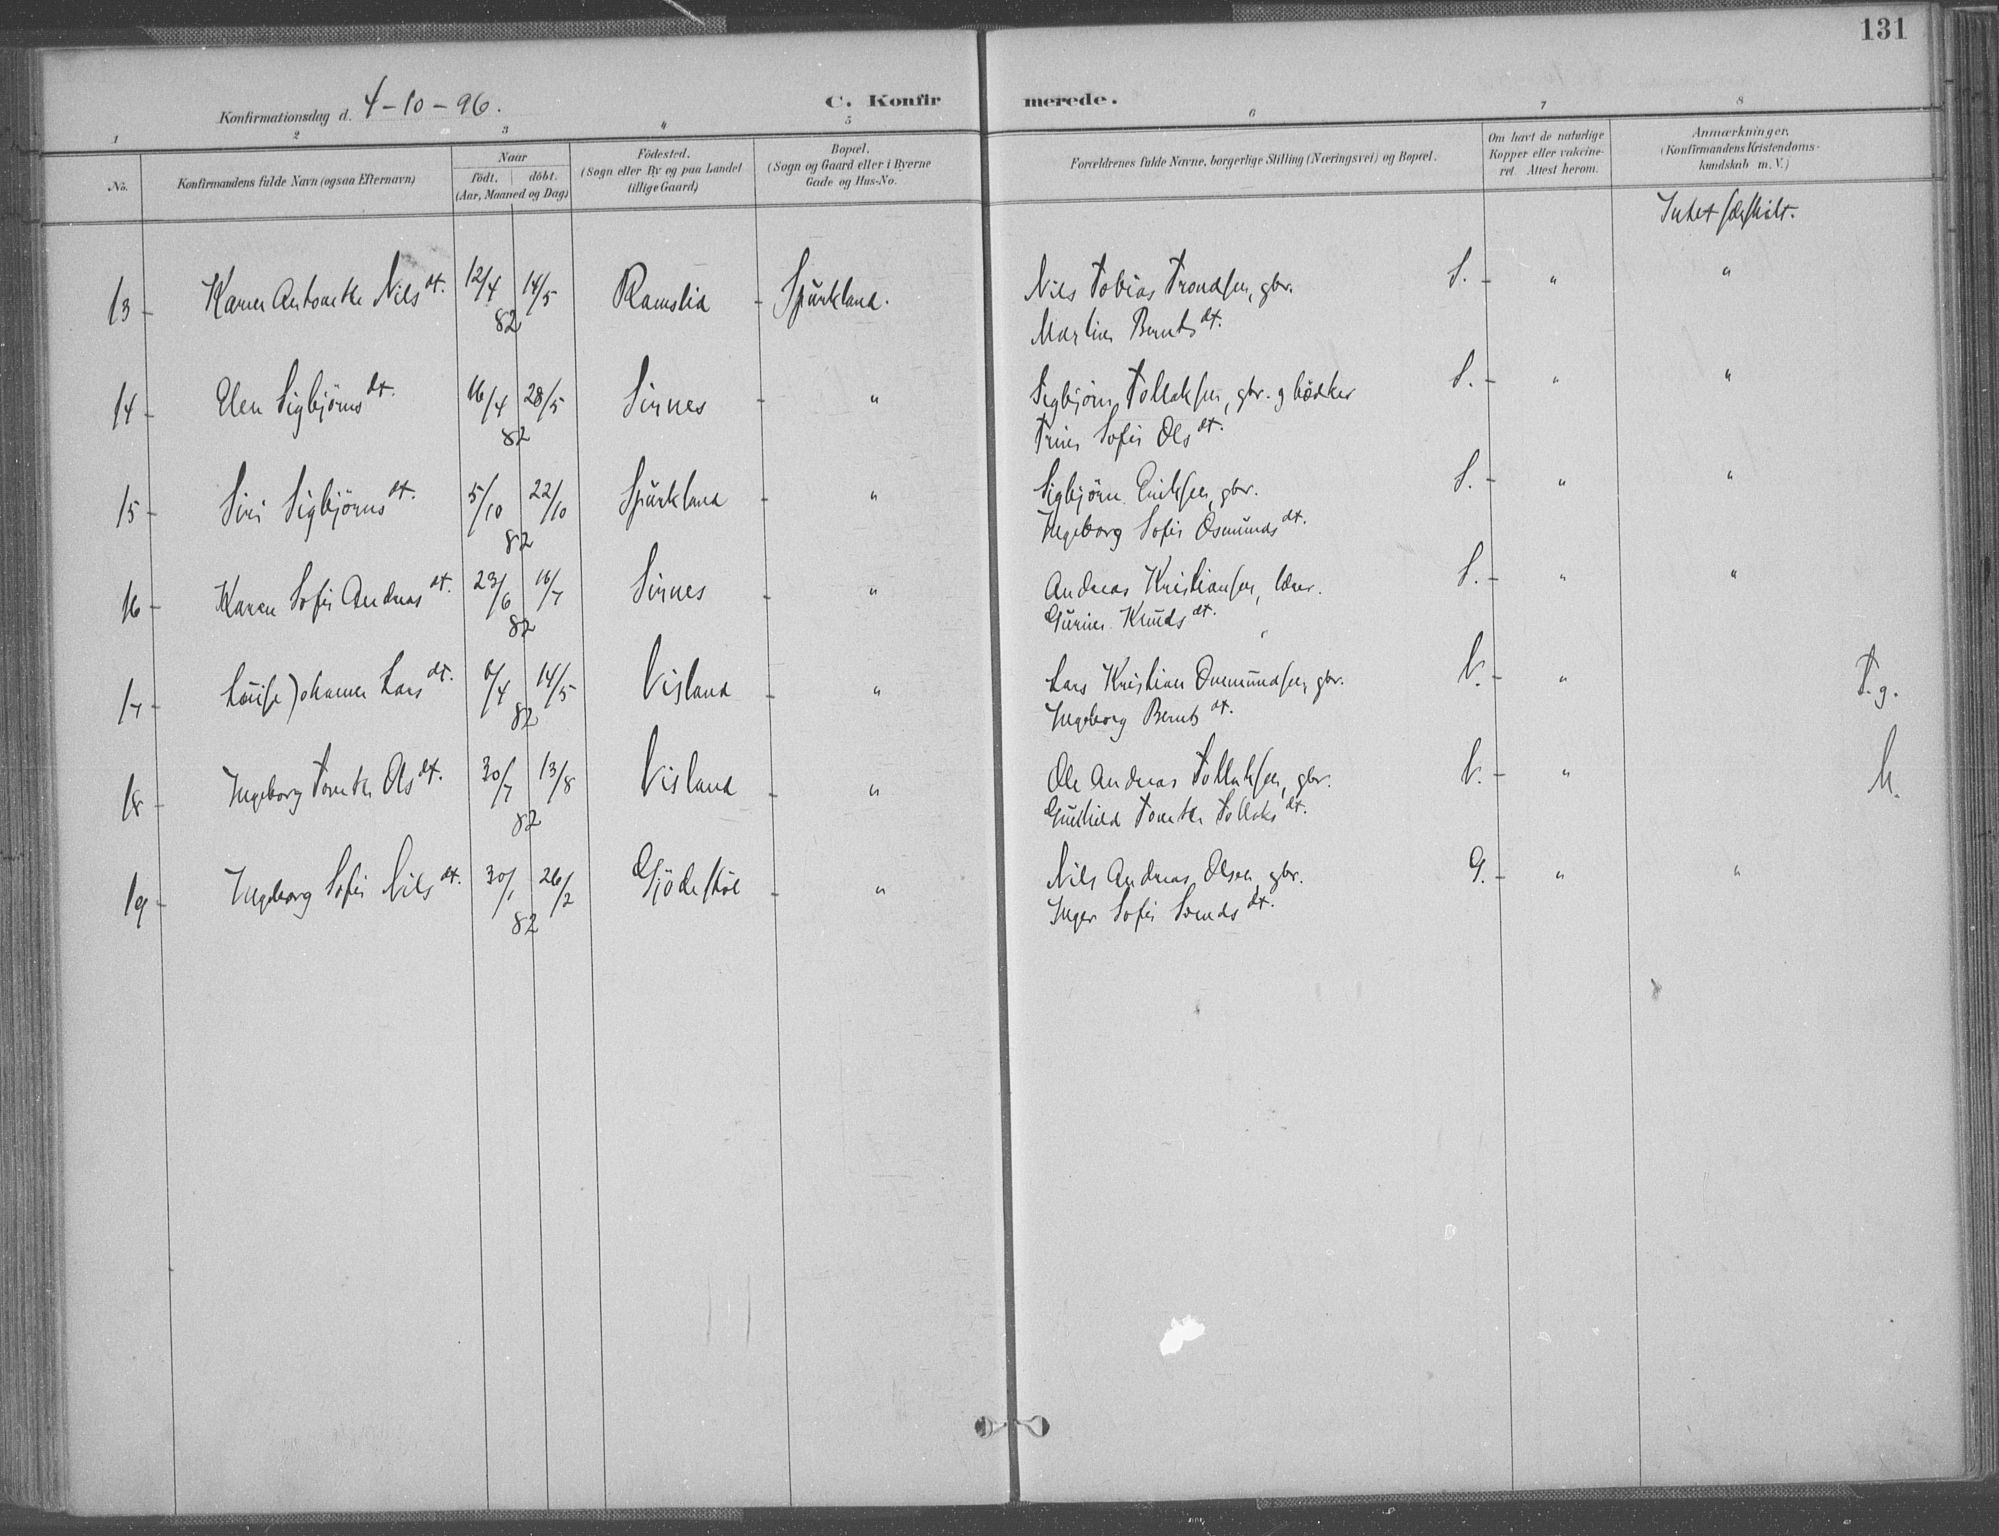 131
Konfirmationsdag d. 4-10-96.
C. Konfirmerede.
1 2 3 4 5 6 7 8
No. Konfirmandens fulde Navn (ogsaa Efternavn) Naar født. døbt. (Aar, Maaned og Dag) Fødested. (Sogn eller By og paa Landet tillige Gaard) Bopæl. (Sogn og Gaard eller i Byerne Gade og Hus-No. Forældrenes fulde Navne, borgerlige Stilling (Næringsvei) og Bopæl. Om havt de naturlige Kopper eller vakcineret. Attest herom. Anmærkninger. (Konfirmandens Kristendomskundskab m. V.)
Intet særskilt.
13 - Karen Antonette Nils dt. 12/4 14/5 82 Ramslia - Spurkland. Nils Tobias Trondsen, gbr. S. - " "
Martine Bernts dt.
14 - Elen Sigbjörns dt. 16/4 28/5 82 Sinnes - " Sigbjörn Tollaksen, gbr. g bödker S. - " "
Trine Sofie Ols dt.
15 - Siri Sigbjörns dt. 5/10 22/10 82 Spurkland - " Sigbjörn Eriksen, gbr. S. - " "
Ingeborg Sofie Osmunds dt.
16 - Karen Sofie Andreas dt. 23/6 16/7 82 Sinnes - " Andreas Kristiansen, lærer. S. - " "
Gurine Knuds dt.
17 - Louise Johanne Lars dt. 6/4 14/5 82 Visland - " Lars Kristian Ommundsen, gbr. V. - " T.g.
Ingeborg Bernts dt.
18 - Ingeborg Tonette Ols dt. 30/7 13/8 82 Visland - " Ole Andreas Tollaksen, gbr. V. - " M.
Gunhild Tonette Tollaks dt.
19 - Ingeborg Sofie Nils dt. 30/1 26/2 82 Gjödestöl - " Nils Andreas Olsen, gbr. G. - " "
Inger Sofie Svends dt.